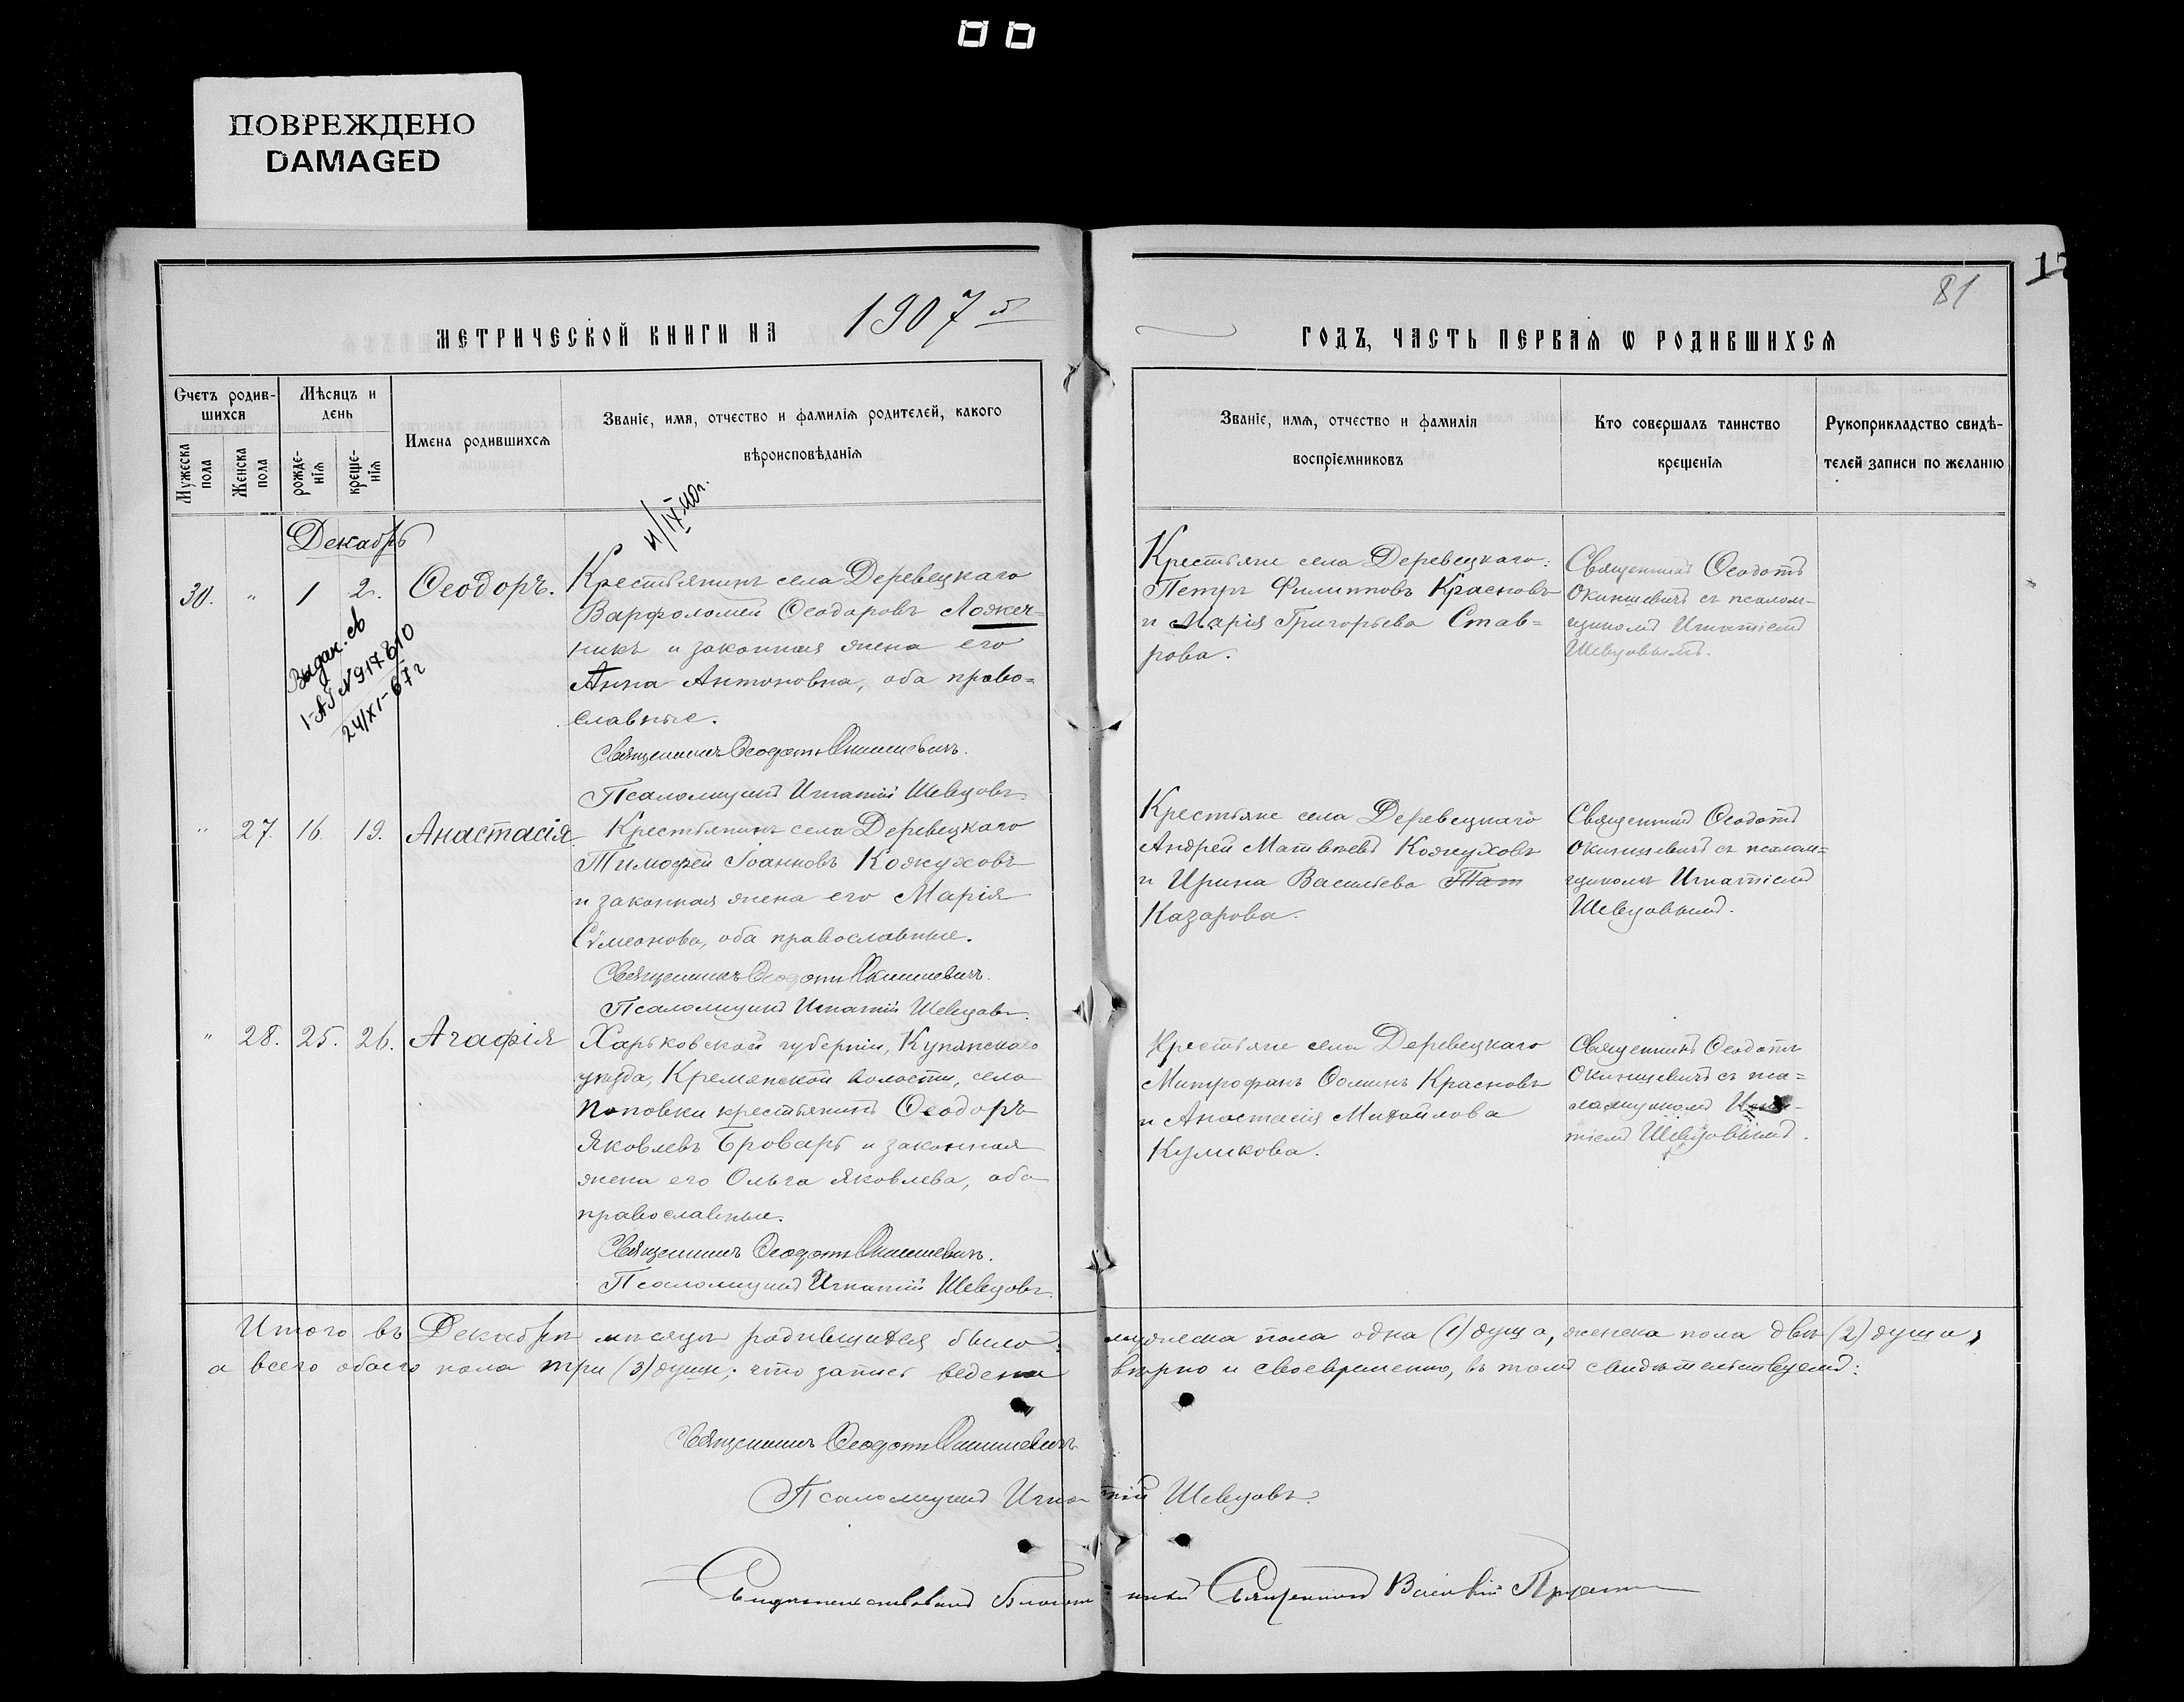 ПОВРЕЖДЕНО
DAMAGED
81
МЕТРИЧЕСКОЙ КНИГИ НА 1907 й
ГОДЪ, ЧАСТЬ ПЕРВАЯ Ѡ РОДИВШИХСѦ
Счетъ родив-
шихся
Мѣсяцъ и
день
Мужеска
пола
Женска
пола
рожде-
нїѧ
креще-
нїѧ
Имена родившихсѧ
Званїе, имя, отчество и фамилїѧ родителей, какого
вѣроисповѣданїѧ
Званїе, имѧ, отчество и фамилїя
воспрїемниковъ
Кто совершалъ таинство
крещенїѧ
Рукоприкладство свидѣ-
телей записи по желанїю
Декабрь
30. " 1 2. Ѳеодоръ.
Крестьянинъ села Деревецкаго
Варфоломей Ѳеодоровъ Ложеч=
никъ и законная жена его
Анна Антоновна, оба право=
славные.
Священникъ Ѳеодотъ Окиншевичъ.
Псаломщикъ Игнатій Шевцовъ.
Выдан. св
1-АБ N 917810
24/XI-67г
Крестьяне села Деревецкаго:
Петръ Филипповъ Красновъ
и Марія Григорьева Став=
рова.
Священникъ Ѳеодотъ
Окиншевичъ съ псалом-
щикомъ Игнатіемъ
Шевцовымъ.
" 27. 16. 19. Анастасія
Крестьянинъ села Деревецкаго
Тимофей Іоанновъ Кожуховъ
и законная жена его Марія
Сѵмеонова, оба православные.
Священникъ Ѳеодотъ Окиншевичъ.
Псаломщикъ Игнатій Шевцовъ.
Крестьяне села Деревецкаго
Андрей Матвѣевъ Кожуховъ
и Ирина Васильева Там
Казарова.
Священникъ Ѳеодотъ
Окиншевичъ съ псалом=
щикомъ Игнатіемъ
Шевцовымъ.
" 28. 25. 26. Агафія
Харьковской губерніи, Купянскаго
уѣзда, Кремянской волости, села
Поповки крестьянинъ Ѳеодоръ
Яковлевъ Броварь и законная
жена его Ольга Яковлева, оба
православные.
Священникъ Ѳеодотъ Окиншевичъ.
Псаломщикъ Игнатій Шевцовъ.
Крестьяне села Деревецкаго
Митрофанъ Ѳоминъ Красновъ
и Анастасія Михайлова
Куликова.
Священникъ Ѳеодотъ
Окиншевичъ съ пса=
ломщикомъ Игна-
тіемъ Шевцовымъ.
Итого въ Декабрѣ мѣсяцѣ родившихся было: мужеска пола одна (1) душа, женска пола двѣ (2) души,
а всего обоего пола три (3) души; что запись ведена вѣрно и своевременно, въ томъ свидѣтельствуемъ:
Священникъ Ѳеодотъ Окиншевичъ
Псаломщикъ Игнатій Шевцовъ.
Свидѣтельствовалъ Священникъ